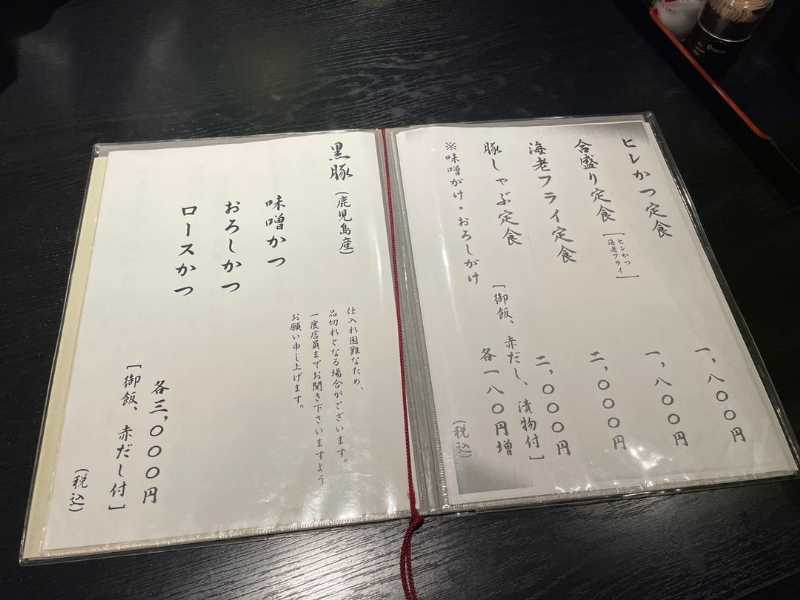 ヒレかつ定食 一、八〇〇円
合盛り定食［ヒレかつ 海老フライ］ 一、八〇〇円
海老フライ定食 二、〇〇〇円
豚しゃぶ定食 二、〇〇〇円
［御飯、赤だし、漬物付］
※味噌がけ・おろしがけ 各一八〇円増
（税込）
黒豚（鹿児島産）
仕入れ困難なため、
品切れとなる場合がございます。
一度店員までお聞き下さいますよう
お願い申し上げます。
味噌かつ
おろしかつ
ロースかつ
各三、〇〇〇円
［御飯、赤だし付］
（税込）